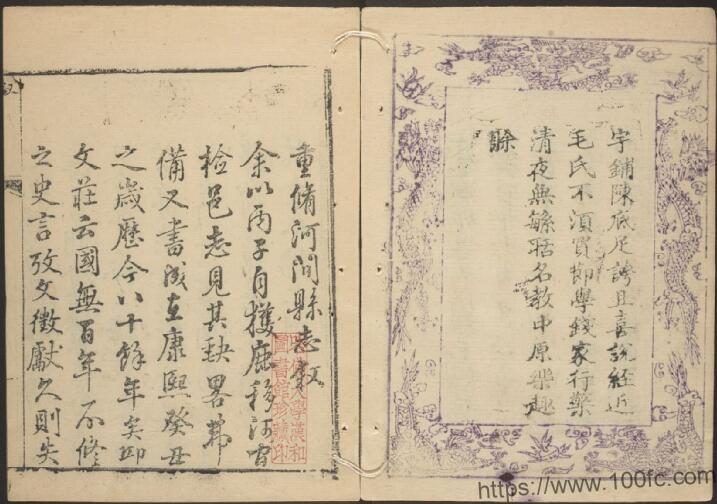 字鋪陳底足誇且喜說經近
毛氏不湏買節學錢家行藥
清夜無聒名教中原樂趣
重脩河間縣志叙
余以丙子自獲鹿移河間
檢邑志見其缺畧弗
備又書成在康熙癸丑
之歲歷今八十餘年矣邱
文莊云國無百年不修
之史言攷文徵獻久則失
哈佛大學漢和
圖書館珍藏印
https://www.100fc.com